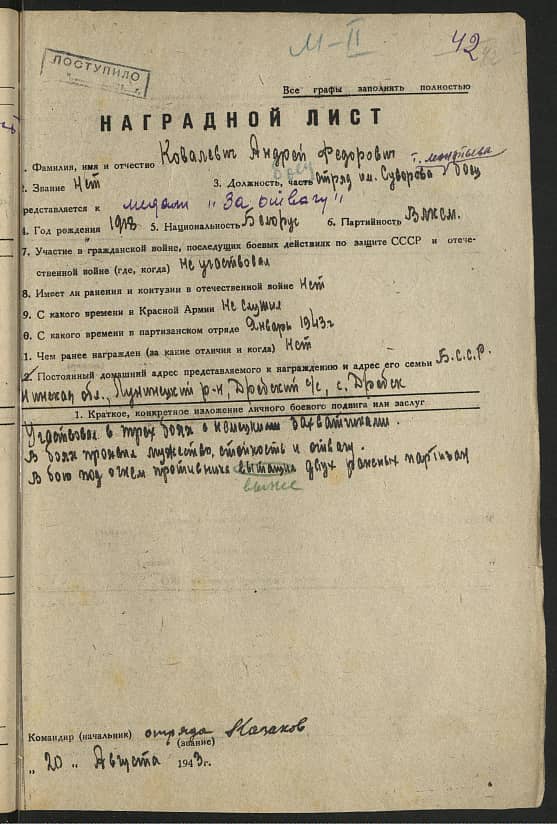 М-II
42
ПОСТУПИЛО
Все графы заполнять полностью
НАГРАДНОЙ ЛИСТ
1. Фамилия, имя и отчество Ковалевич Андрей Федорович
2. Звание Нет 3. Должность, часть отряд им. Суворова боец
представляется к медали "За отвагу"
4. Год рождения 1918 5. Национальность Белорус 6. Партийность Влксм.
7. Участие в гражданской войне, последущих боевых действиях по защите СССР и отече-
ственной войне (где, когда) Не участвовал
8. Имеет ли ранения и контузии в отечественной войне Нет
9. С какого времени в Красной Армии Не служил
0. С какого времени в партизанском отряде Январь 1943 г
1. Чем ранее награжден (за какие отличия и когда) Нет
2. Постоянный домашний адрес представляемого к награждению и адрес его семьи Б.С.С.Р.
Пинская обл., Лунинецкий р-н, Дребский с/с, с. Дребск
1. Краткое, конкретное изложение личного боевого подвига или заслуг
Участвовал в трех боях с немецкими захватчиками.
В боях проявил мужество, стойкость и отвагу.
В бою под огнем противника вытащил двух раненых партизан
вынес
Командир (начальник) отряда Казаков
(звание)
„ 20 „ Августа 1943 г.